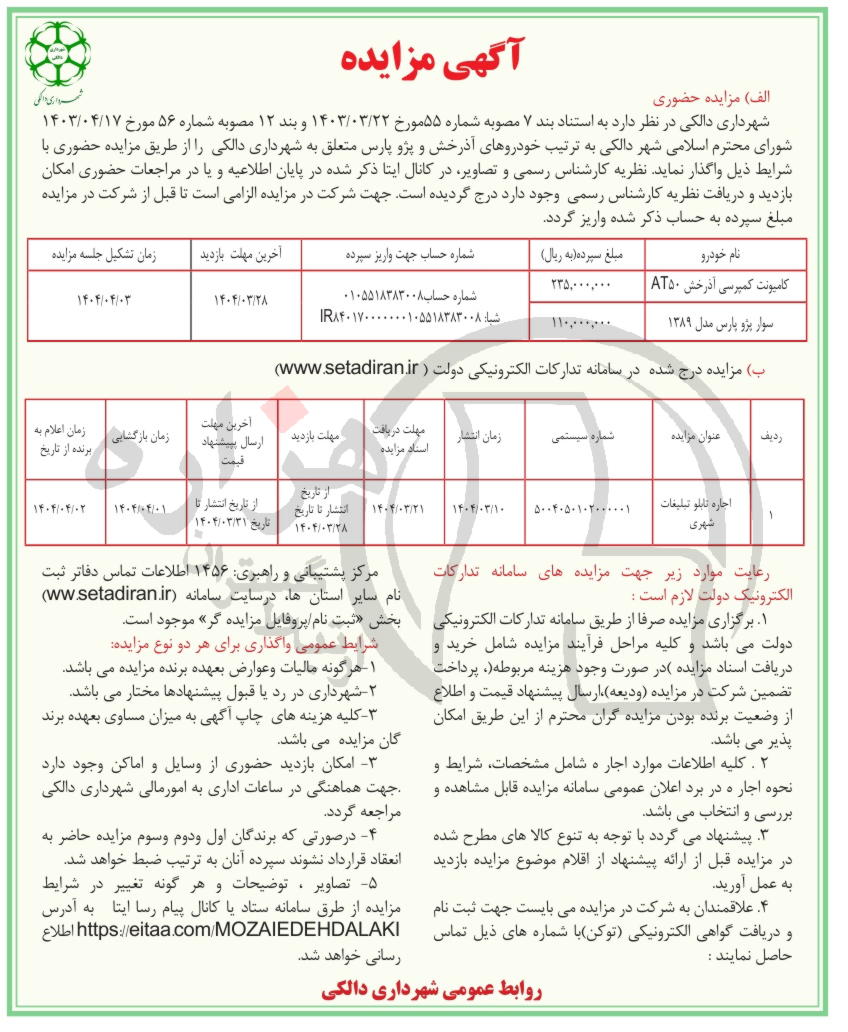 شهرداری دالکی
شهرداری دالکی
آگهی مزایده
الف) مزایده حضوری
شهرداری دالکی در نظر دارد به استناد بند ۷ مصوبه شماره ۵۵مورخ ۱۴۰۳/۰۳/۲۲ و بند ۱۲ مصوبه شماره ۵۶ مورخ ۱۴۰۳/۰۴/۱۷
شورای محترم اسلامی شهر دالکی به ترتیب خودروهای آذرخش و پژو پارس متعلق به شهرداری دالکی را از طریق مزایده حضوری با
شرایط ذیل واگذار نماید. نظریه کارشناس رسمی و تصاویر، در کانال ایتا ذکر شده در پایان اطلاعیه و یا در مراجعات حضوری امکان
بازدید و دریافت نظریه کارشناس رسمی وجود دارد درج گردیده است. جهت شرکت در مزایده الزامی است تا قبل از شرکت در مزایده
مبلغ سپرده به حساب ذکر شده واریز گردد.
نام خودرو	مبلغ سپرده(به ریال)	شماره حساب جهت واریز سپرده	آخرین مهلت بازدید	زمان تشکیل جلسه مزایده
کامیونت کمپرسی آذرخش AT۵۰	۲۳۵,۰۰۰,۰۰۰	شماره حساب۰۱۰۵۵۱۸۳۸۳۰۰۸	۱۴۰۴/۰۳/۲۸	۱۴۰۴/۰۴/۰۳
سوار پژو پارس مدل ۱۳۸۹	۱۱۰,۰۰۰,۰۰۰	شبا: IR۸۴۰۱۷۰۰۰۰۰۰۰۱۰۵۵۱۸۳۸۳۰۰۸
ب) مزایده درج شده در سامانه تدارکات الکترونیکی دولت ( www.setadiran.ir)
ردیف	عنوان مزایده	شماره سیستمی	زمان انتشار	مهلت دریافت اسناد مزایده	مهلت بازدید	آخرین مهلت ارسال پیپشنهاد قیمت	زمان بازگشایی	زمان اعلام به برنده از تاریخ
۱	اجاره تابلو تبلیغات شهری	۵۰۰۴۰۵۰۱۰۲۰۰۰۰۰۱	۱۴۰۴/۰۳/۱۰	۱۴۰۴/۰۳/۲۱	از تاریخ انتشار تا تاریخ ۱۴۰۴/۰۳/۲۸	از تاریخ انتشار تا تاریخ ۱۴۰۴/۰۳/۳۱	۱۴۰۴/۰۴/۰۱	۱۴۰۴/۰۴/۰۲
رعایت موارد زیر جهت مزایده های سامانه تدارکات
الکترونیک دولت لازم است :
۱. برگزاری مزایده صرفا از طریق سامانه تدارکات الکترونیکی
دولت می باشد و کلیه مراحل فرآیند مزایده شامل خرید و
دریافت اسناد مزایده )در صورت وجود هزینه مربوطه(، پرداخت
تضمین شرکت در مزایده (ودیعه)،ارسال پیشنهاد قیمت و اطلاع
از وضعیت برنده بودن مزایده گران محترم از این طریق امکان
پذیر می باشد.
۲ . کلیه اطلاعات موارد اجار ه شامل مشخصات، شرایط و
نحوه اجار ه در برد اعلان عمومی سامانه مزایده قابل مشاهده و
بررسی و انتخاب می باشد.
۳. پیشنهاد می گردد با توجه به تنوع کالا های مطرح شده
در مزایده قبل از ارائه پیشنهاد از اقلام موضوع مزایده بازدید
به عمل آورید.
۴. علاقمندان به شرکت در مزایده می بایست جهت ثبت نام
و دریافت گواهی الکترونیکی (توکن)با شماره های ذیل تماس
حاصل نمایند :
مرکز پشتیبانی و راهبری: ۱۴۵۶ اطلاعات تماس دفاتر ثبت
نام سایر استان ها، درسایت سامانه (ww.setadiran.ir)
بخش «ثبت نام/پروفایل مزایده گر» موجود است.
شرایط عمومی واگذاری برای هر دو نوع مزایده:
۱-هرگونه مالیات وعوارض بعهده برنده مزایده می باشد.
۲-شهرداری در رد یا قبول پیشنهادها مختار می باشد.
۳-کلیه هزینه های چاپ آگهی به میزان مساوی بعهده برند
گان مزایده می باشد.
۳- امکان بازدید حضوری از وسایل و اماکن وجود دارد
.جهت هماهنگی در ساعات اداری به امورمالی شهرداری دالکی
مراجعه گردد.
۴- درصورتی که برندگان اول ودوم وسوم مزایده حاضر به
انعقاد قرارداد نشوند سپرده آنان به ترتیب ضبط خواهد شد.
۵- تصاویر ، توضیحات و هر گونه تغییر در شرایط
مزایده از طرق سامانه ستاد یا کانال پیام رسا ایتا به آدرس
https://eitaa.com/MOZAIEDEHDALAKI اطلاع
رسانی خواهد شد.
روابط عمومی شهرداری دالکی
هزاره